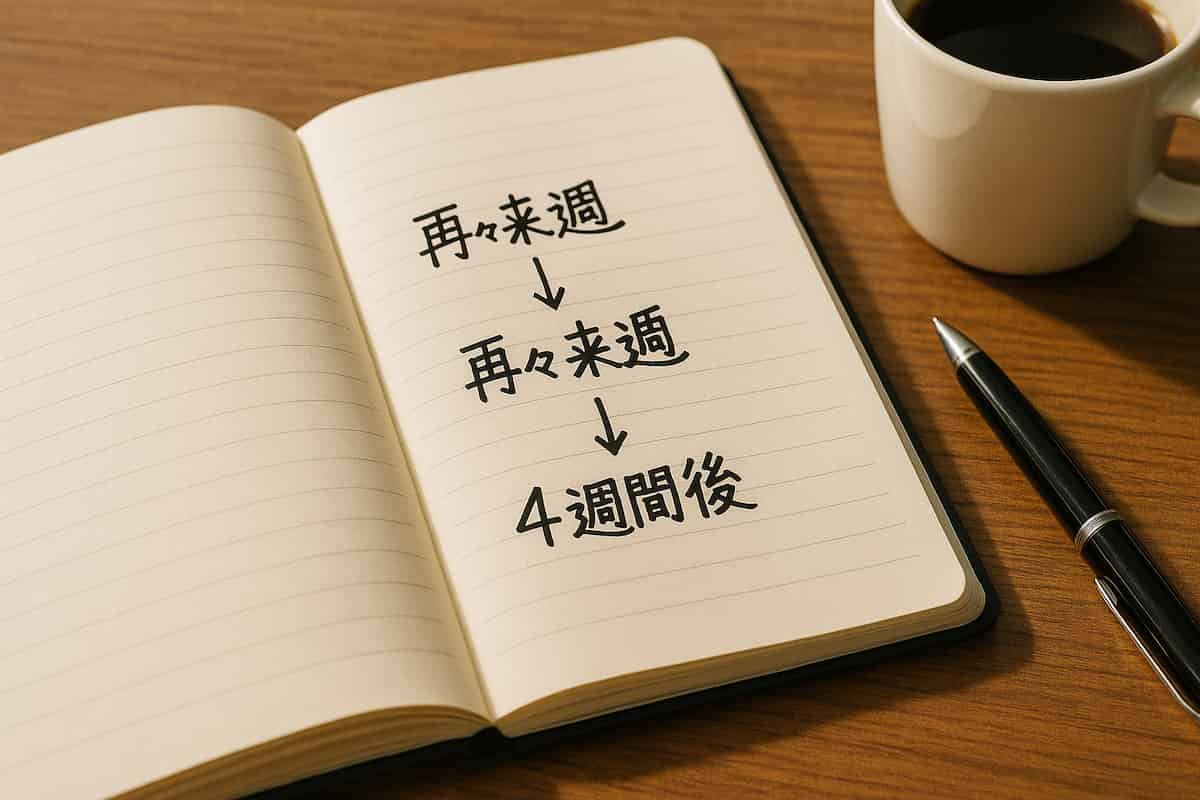 再々来週
↓
再々来週
↓
4週間後